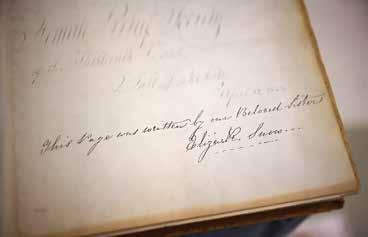 Female Relief Society
of the Thirteenth Ward
This Page was written by our Beloved Sister
Eliza R. Snow